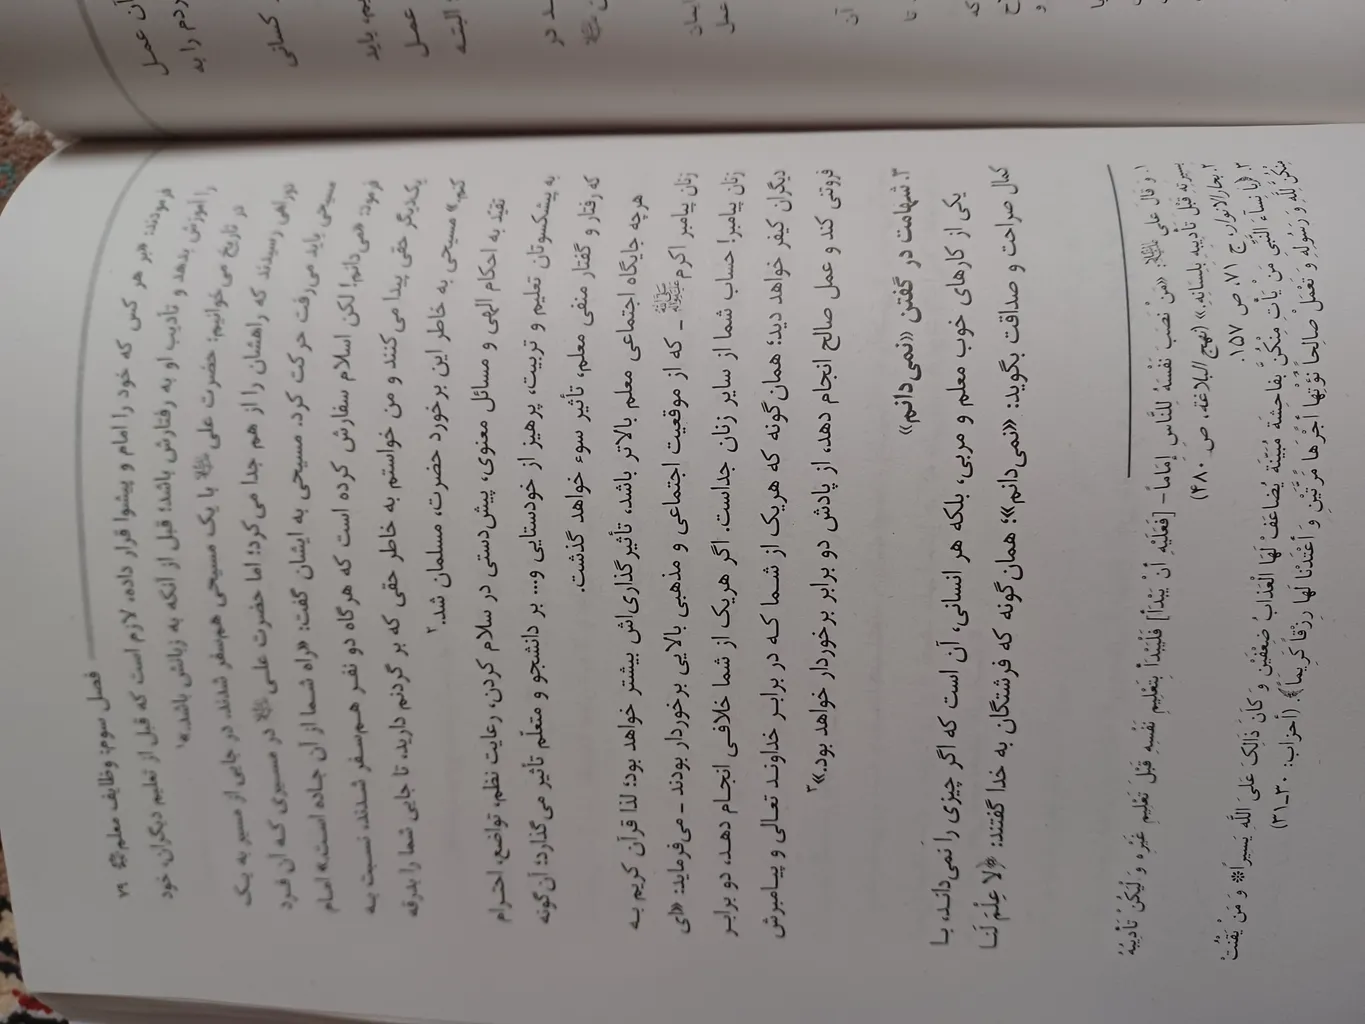 فصل سوم: وظایف معلم ۷۹
فرمودند: «بر هر کس که خود را امام و پیشوا قرار داده، لازم است که قبل از تعلیم دیگران، خود
را آموزش بدهد و تأدیب او به رفتارش باشد؛ قبل از آنکه به زبانش باشد.»۱
در تاریخ می‌خوانیم: حضرت علی با یک مسیحی هم‌سفر شدند. در جایی از مسیر به یک
دوراهی رسیدند که راهشان را از هم جدا می‌کرد؛ اما حضرت علی در مسیری که آن فرد
مسیحی باید می‌رفت حرکت کرد. مسیحی به ایشان گفت: «راه شما از آن جاده است.» امام
فرمود: «می‌دانم! لکن اسلام سفارش کرده است که هرگاه دو نفر هم‌سفر شدند، نسبت به
یک‌دیگر حقی پیدا می‌کنند و من خواستم به خاطر حقی که بر گردنم دارید، تا جایی شما را بدرقه
کنم.» مسیحی به خاطر این برخورد حضرت، مسلمان شد.۲
تقیّد به احکام الهی و مسائل معنوی، پیش‌دستی در سلام کردن، رعایت نظم، تواضع، احترام
به پیشکسوتان تعلیم و تربیت، پرهیز از خودستایی و... بر دانشجو و متعلّم تأثیر می‌گذارد؛ آن‌گونه
که رفتار و گفتار منفی معلم، تأثیر سوء خواهد گذشت.
هرچه جایگاه اجتماعی معلم بالاتر باشد، تأثیرگذاری‌اش بیشتر خواهد بود؛ لذا قرآن کریم به
زنان پیامبر اکرم ﷺ ـ که از موقعیت اجتماعی و مذهبی بالایی برخوردار بودند ـ می‌فرماید: «ای
زنان پیامبر! حساب شما از سایر زنان جداست. اگر هریک از شما خلافی انجام دهد، دو برابر
دیگران کیفر خواهد دید؛ همان‌گونه که هریک از شما که در برابر خداوند تعالی و پیامبرش
فروتنی کند و عمل صالح انجام دهد، از پادش دو برابر برخوردار خواهد بود.»۳
۳. شهامت در گفتن «نمی‌دانم»
یکی از کارهای خوب معلم و مربی، بلکه هر انسانی، آن است که اگر چیزی را نمی‌داند، با
کمال صراحت و صداقت بگوید: «نمی‌دانم»؛ همان‌گونه که فرشتگان به خدا گفتند: ﴿لا عِلْمَ لَنا
۱. و قال علی: «مَنْ نَصَبَ نَفْسَهُ لِلنَّاسِ إِمَاماً- [فَعَلَيْهِ أَنْ يَبْدَأَ] فَلْيَبْدَأْ بِتَعْلِيمِ نَفْسِهِ قَبْلَ تَعْلِيمِ غَيْرِهِ وَ لْيَكُنْ تَأْدِيبُهُ
بِسِيرَتِهِ قَبْلَ تَأْدِيبِهِ بِلِسَانِهِ.» (نهج البلاغة، ص ۴۸۰)
۲. بحارالانوار، ج ۷۱، ص ۱۵۷.
۳. ﴿يا نِساءَ النَّبِيِّ مَنْ يَأْتِ مِنْكُنَّ بِفاحِشَةٍ مُبَيِّنَةٍ يُضاعَفْ لَهَا الْعَذابُ ضِعْفَيْنِ وَ كانَ ذلِكَ عَلَى اللَّهِ يَسيراً* وَ مَنْ يَقْنُتْ
مِنْكُنَّ لِلَّهِ وَ رَسُولِهِ وَ تَعْمَلْ صالِحاً نُؤْتِها أَجْرَها مَرَّتَيْنِ وَ أَعْتَدْنا لَها رِزْقاً كَريماً﴾. (احزاب: ۳۰ـ۳۱)